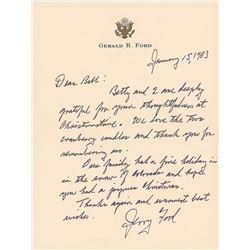 GERALD R. FORD
January 15, 1983
Dear Bill:
Betty and I are deeply
grateful for your thoughtfulness at
Christmastime. We love the two
cranberry candles and thank you for
remembering us.
Our family had a fine holiday in
in the snow of Colorado and hope
you had a joyous Christmas.
Thanks again and warmest best
wishes.
Jerry Ford